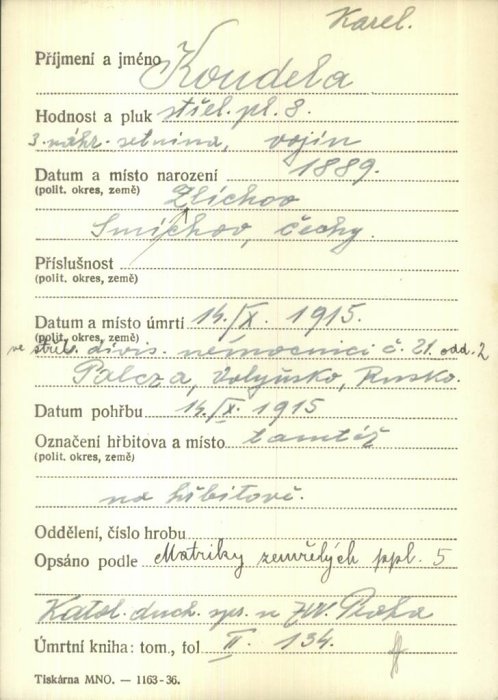 Karel.
Příjmení a jméno Koudela
Hodnost a pluk střel. pl. 8.
3. náhr. setnina, vojín
Datum a místo narození 1889.
(polit. okres, země) Zlíchov
Smíchov, Čechy.
Příslušnost
(polit. okres, země)
Datum a místo úmrtí 14./X. 1915.
(polit. okres, země)
ve střel. divis. nemocnici č. 21. odd. 2
Palcza, Volyňsko, Rusko.
Datum pohřbu 14./X. 1915
Označení hřbitova a místo tamtéž
(polit. okres, země)
na hřbitově.
Oddělení, číslo hrobu
Opsáno podle Matriky zemřelých ppl. 5
Katol. duch. spr. u ZVV. Praha
Úmrtní kniha: tom., fol. II. 134.
Tiskárna MNO. — 1163-36.